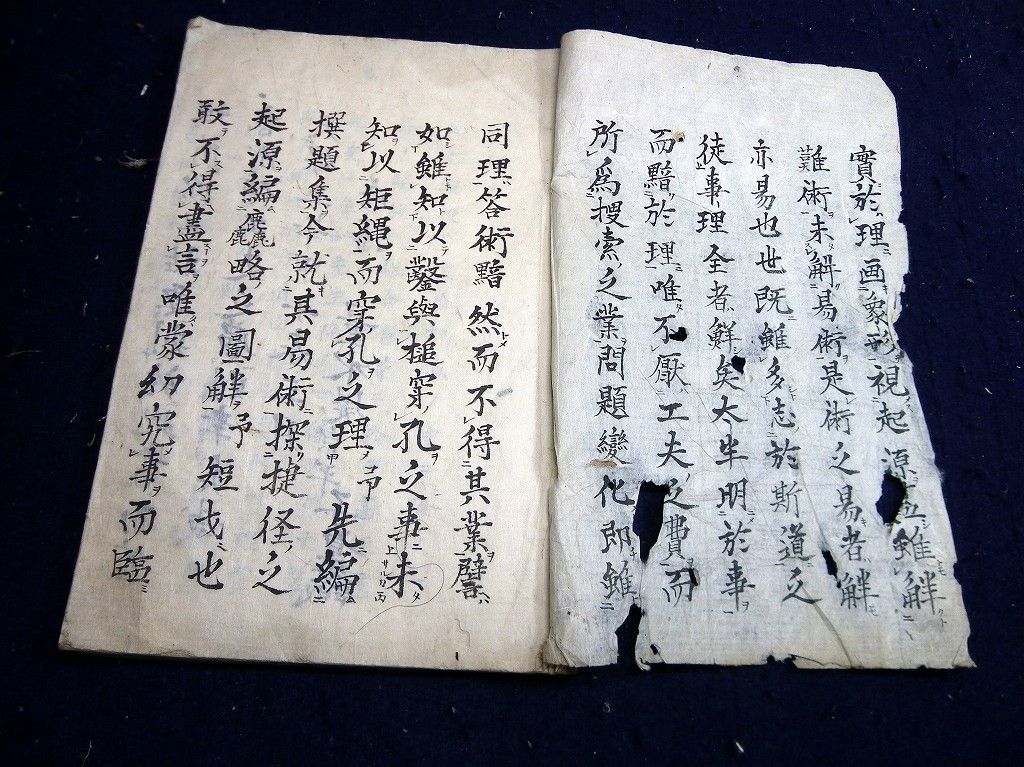 實於理画象形視起源五雖觧
難術未觧易術是術之易者觧
亦易也世既雖多志於斯道之
徒事理全者鮮矣太半明於事
而黯於理唯不厭工夫之費而
所為捜索之業問題變化即雖
同理答術黯然而不得其業譬
如雖知以鑿與槌穿孔之事未
知以矩縄而穿孔之理予先編
撰題集今就其易術探捷径之
起源編麤略之圖觧予短才也
敢不得盡言唯蒙幼究事而臨